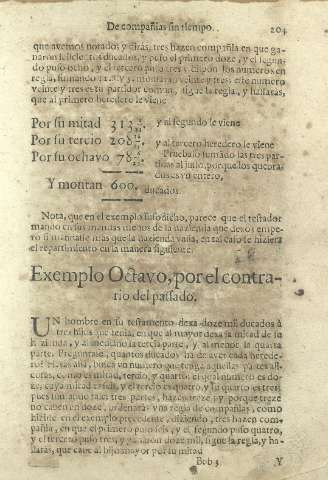 De compañias sin tiempo. 204
que avemos notados y diras, tres hazen compañia en que ga-
naron ducados, y puso el primero doze, y el segun-
do puso ocho, y el tercero puso tres
sumando 12. 8 y 3. montaran veinte y tres: este numero
veinte y tres es tu partidor comun, sigue la regla, y hallaras,
que al primero heredero le viene
Por su mitad 313 y al segundo le viene
Por su tercio 208 y al tercero heredero le viene
Por su ochavo 78 sumãdo las tres par-
tidas al justo, porque los
entero,
Y montan 600. ducados.
Nota, que en el exemplo susodicho, parece que el testador
mando en sus mandas menos de la hazienda que dexo: empe-
ro si mandasse mas que la hazienda valia, en tal caso se hiziera
el repartimiento en la manera siguiente.
Exemplo Octavo, por el contra-
rio del passado.
UN hombre en su testamento dexa doze mil ducados à
tres hijos que tenia, en que al mayor dexa la mitad de su
hazienda, y al mediano la tercia parte, y al menor la quarta
parte. Preguntase, quantos ducados ha de aver cada herede-
ro? busca un numero que tenga aquellas partes
como es mitad, tercio, y quarto: el qual numero es do-
ze, cuya mitad es seis, y el tercio es quatro, y su quarto es tres,
pues sumando tres partes, hazen treze: y porque treze
no caben en doze, ordenaràs una regla de compañias, como
hiziste en el exemplo precedente, diziendo, tres hazen com-
pañia, en que el primero puso seis, y el segundo puso quatro,
y el tercero puso tres, y ganaron doze mil, sigue la regla, y ha-
llaras, que cabe al hijo mayor por su mitad
Bob 3 Y